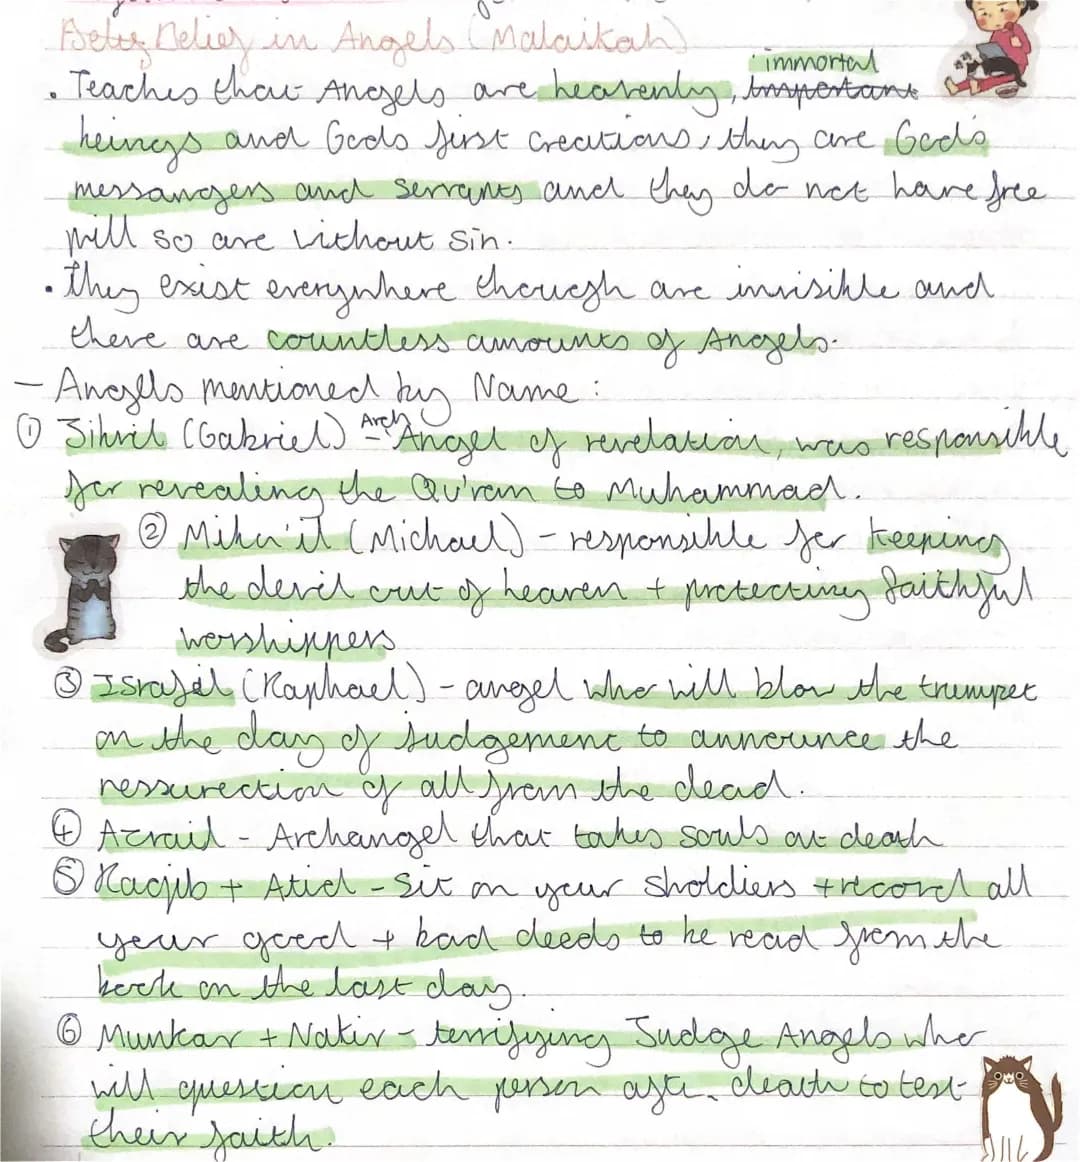 Belief in Angels (Malaikah)
immortal
• Teaches that Angels are heavenly, important
beings and Gods first creations, they are God's
messangers and servants and they do not have free
will so are without sin.
• They exist everywhere though are invisible and
there are countless amounts of Angels.
- Angels mentioned by Name:
Arch
① Jibril (Gabriel) - Angel of revelation, was responsible
for revealing the Qu'ran to Muhammad.
② Mika'il (Michael) - responsible for keeping
the devil out of heaven + protecting faithful
worshippers
③ Israfil (Raphael) - angel who will blow the trumpet
on the day of judgement to announce the
ressurection of all from the dead.
④ Azrail - Archangel that takes souls at death
⑤ Raqib + Atid - Sit on your sholdiers + record all
your good + bad deeds to be read from the
book on the last day.
⑥ Munkar + Nakir - terrifying Judge Angels who
will question each person after death to test
their faith.